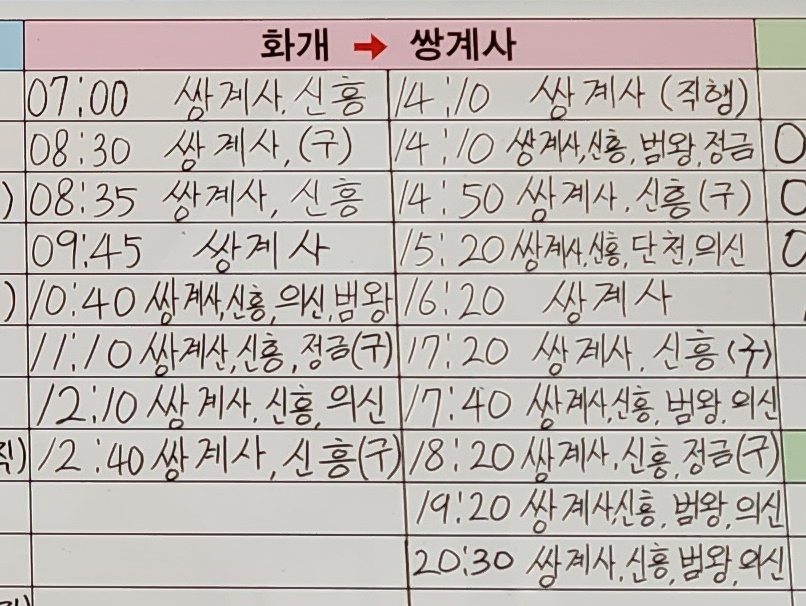 화개 → 쌍계사
07:00 쌍계사, 신흥 14:10 쌍계사 (직행)
08:30 쌍계사, (구) 14:10 쌍계사, 신흥, 범왕, 정금 0
) 08:35 쌍계사, 신흥 14:50 쌍계사, 신흥 (구) 0
09:45 쌍계사 15:20 쌍계사, 신흥, 단천, 의신 0
) 10:40 쌍계사, 신흥, 의신, 범왕 16:20 쌍계사
11:10 쌍계산, 신흥, 정금(구) 17:20 쌍계사, 신흥 (구)
12:10 쌍계사, 신흥, 의신 17:40 쌍계사, 신흥, 범왕, 의신
직) 12:40 쌍계사, 신흥(구) 18:20 쌍계사, 신흥, 정금(구)
19:20 쌍계사, 신흥, 범왕, 의신
20:30 쌍계사, 신흥, 범왕, 의신